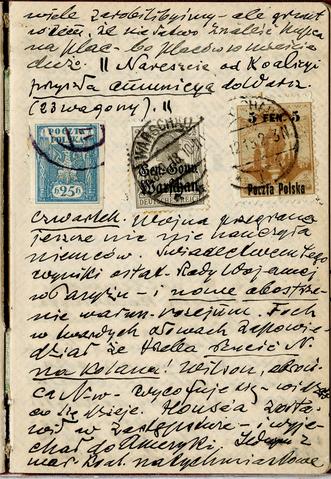 wiele zarobilibyśmy - ale grunt
w tem, że nie łatwo znaleźć kupca
na plac - bo placów w mieście
dużo. || Nareszcie od Koalicji
przyszła amunicya do Warsz
(23 wagony). ||
POCZTA
POLSKA
25 f
WARSCHAU
Gen.-Gouv.
Warschau
DEUTSCHES REICH
5 FEN. 5
Poczta Polska
Czwartek. Wojna przegrana
jeszcze nic nie nauczyła
niemców. Świadectwem tego
wyniki ostat. Rady Wojennej
w Paryżu - i nowe obostrze-
nie warun. rozejmu. Foch
w twardych słowach zapowie-
dział że trzeba rzucić N.
na kolana! Wilson,
ca N-w - wycofuje się - widząc
co się dzieje. Housa zosta-
wił w zastępstwie - i wyje-
chał do Ameryki. Jednym z
natychmiastowe